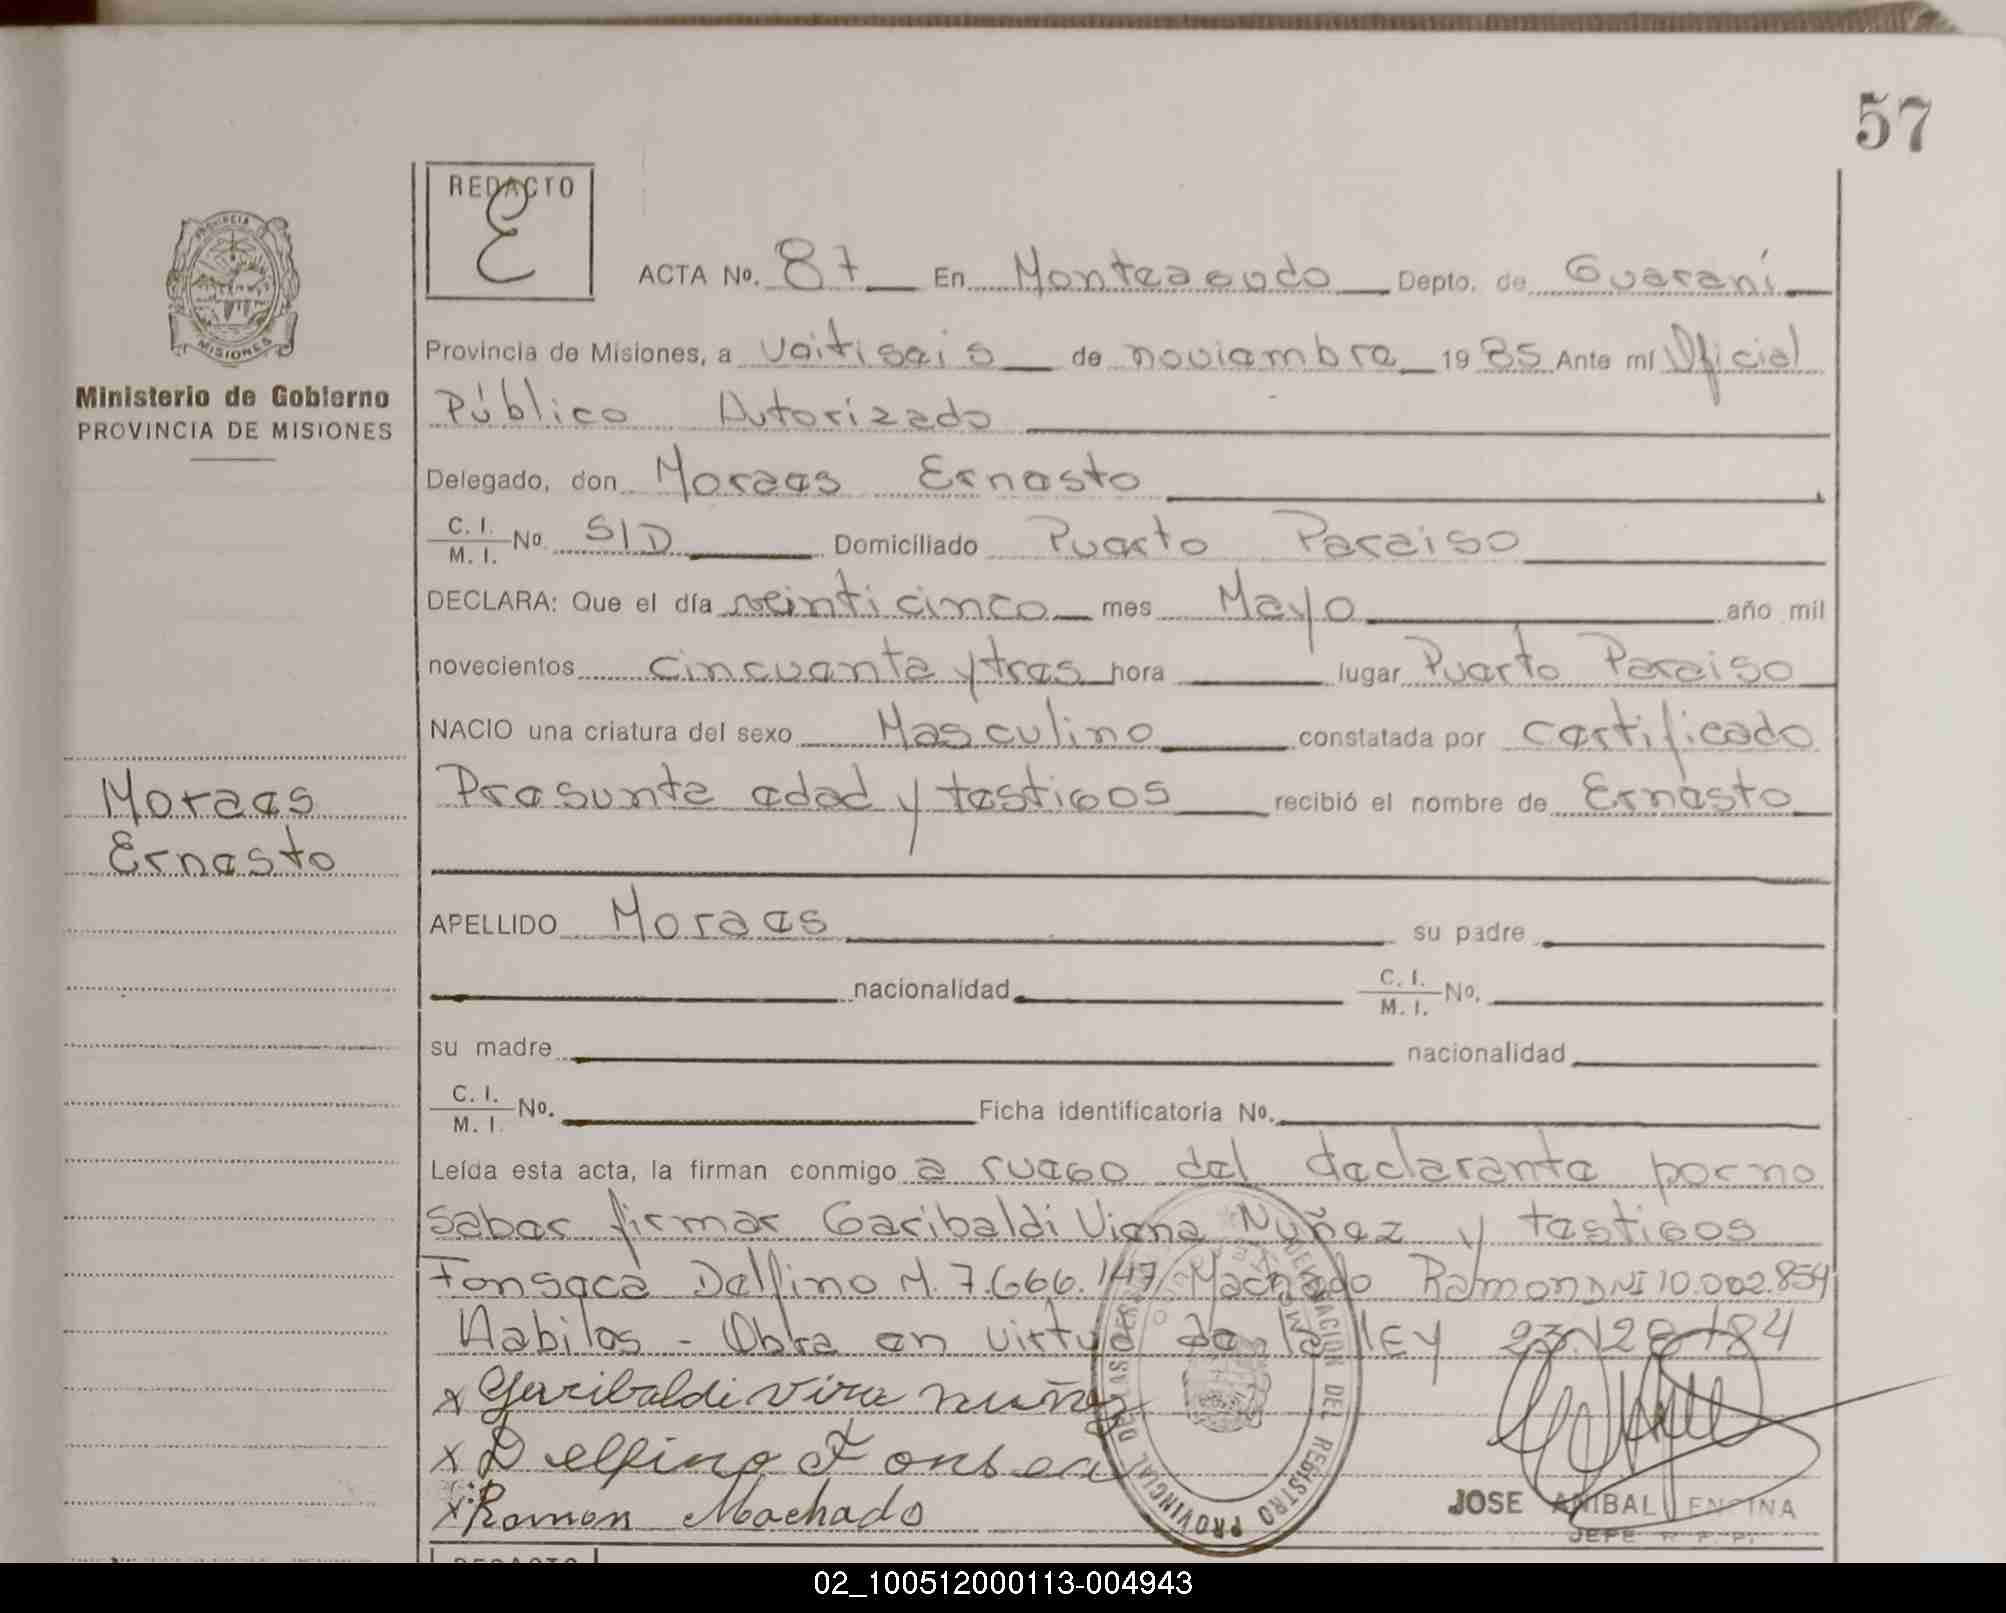 57
REDACTO
E
ACTA No. 87 En Monteagudo Depto. de Guaraní
Provincia de Misiones, a veitiseis de noviembre 1985 Ante mí Oficial
Público Autorizado
Delegado, don Moraes Ernesto
C. I. / M. I. No. S/D Domiciliado Puerto Paraiso
DECLARA: Que el día veinticinco mes Mayo año mil
novecientos cincuenta y tres hora lugar Puerto Paraiso
NACIO una criatura del sexo Masculino constatada por certificado
Presunta edad y testigos recibió el nombre de Ernesto
APELLIDO Moraes su padre
nacionalidad C. I. / M. I. No.
su madre nacionalidad
C. I. / M. I. No. Ficha identificatoria No.
Leída esta acta, la firman conmigo a ruego del declarante por no
saber firmar Garibaldi Viana Nuñez y testigos
Fonseca Delfino M. 7.666.147 Machado Ramon DNI 10.002.854
Habiles - Obra en virtud de la LEY 23.128/84
x Garibaldi Vira nuñez
x Delfino Fonseca
x Ramon Machado
JOSE ANIBAL ENCINA
JEFE R. P. P.
PROVINCIA
MISIONES
Ministerio de Gobierno
PROVINCIA DE MISIONES
Moraes
Ernesto
REGISTRO PROVINCIAL DE LAS PERSONAS
REDACTO
02_100512000113-004943